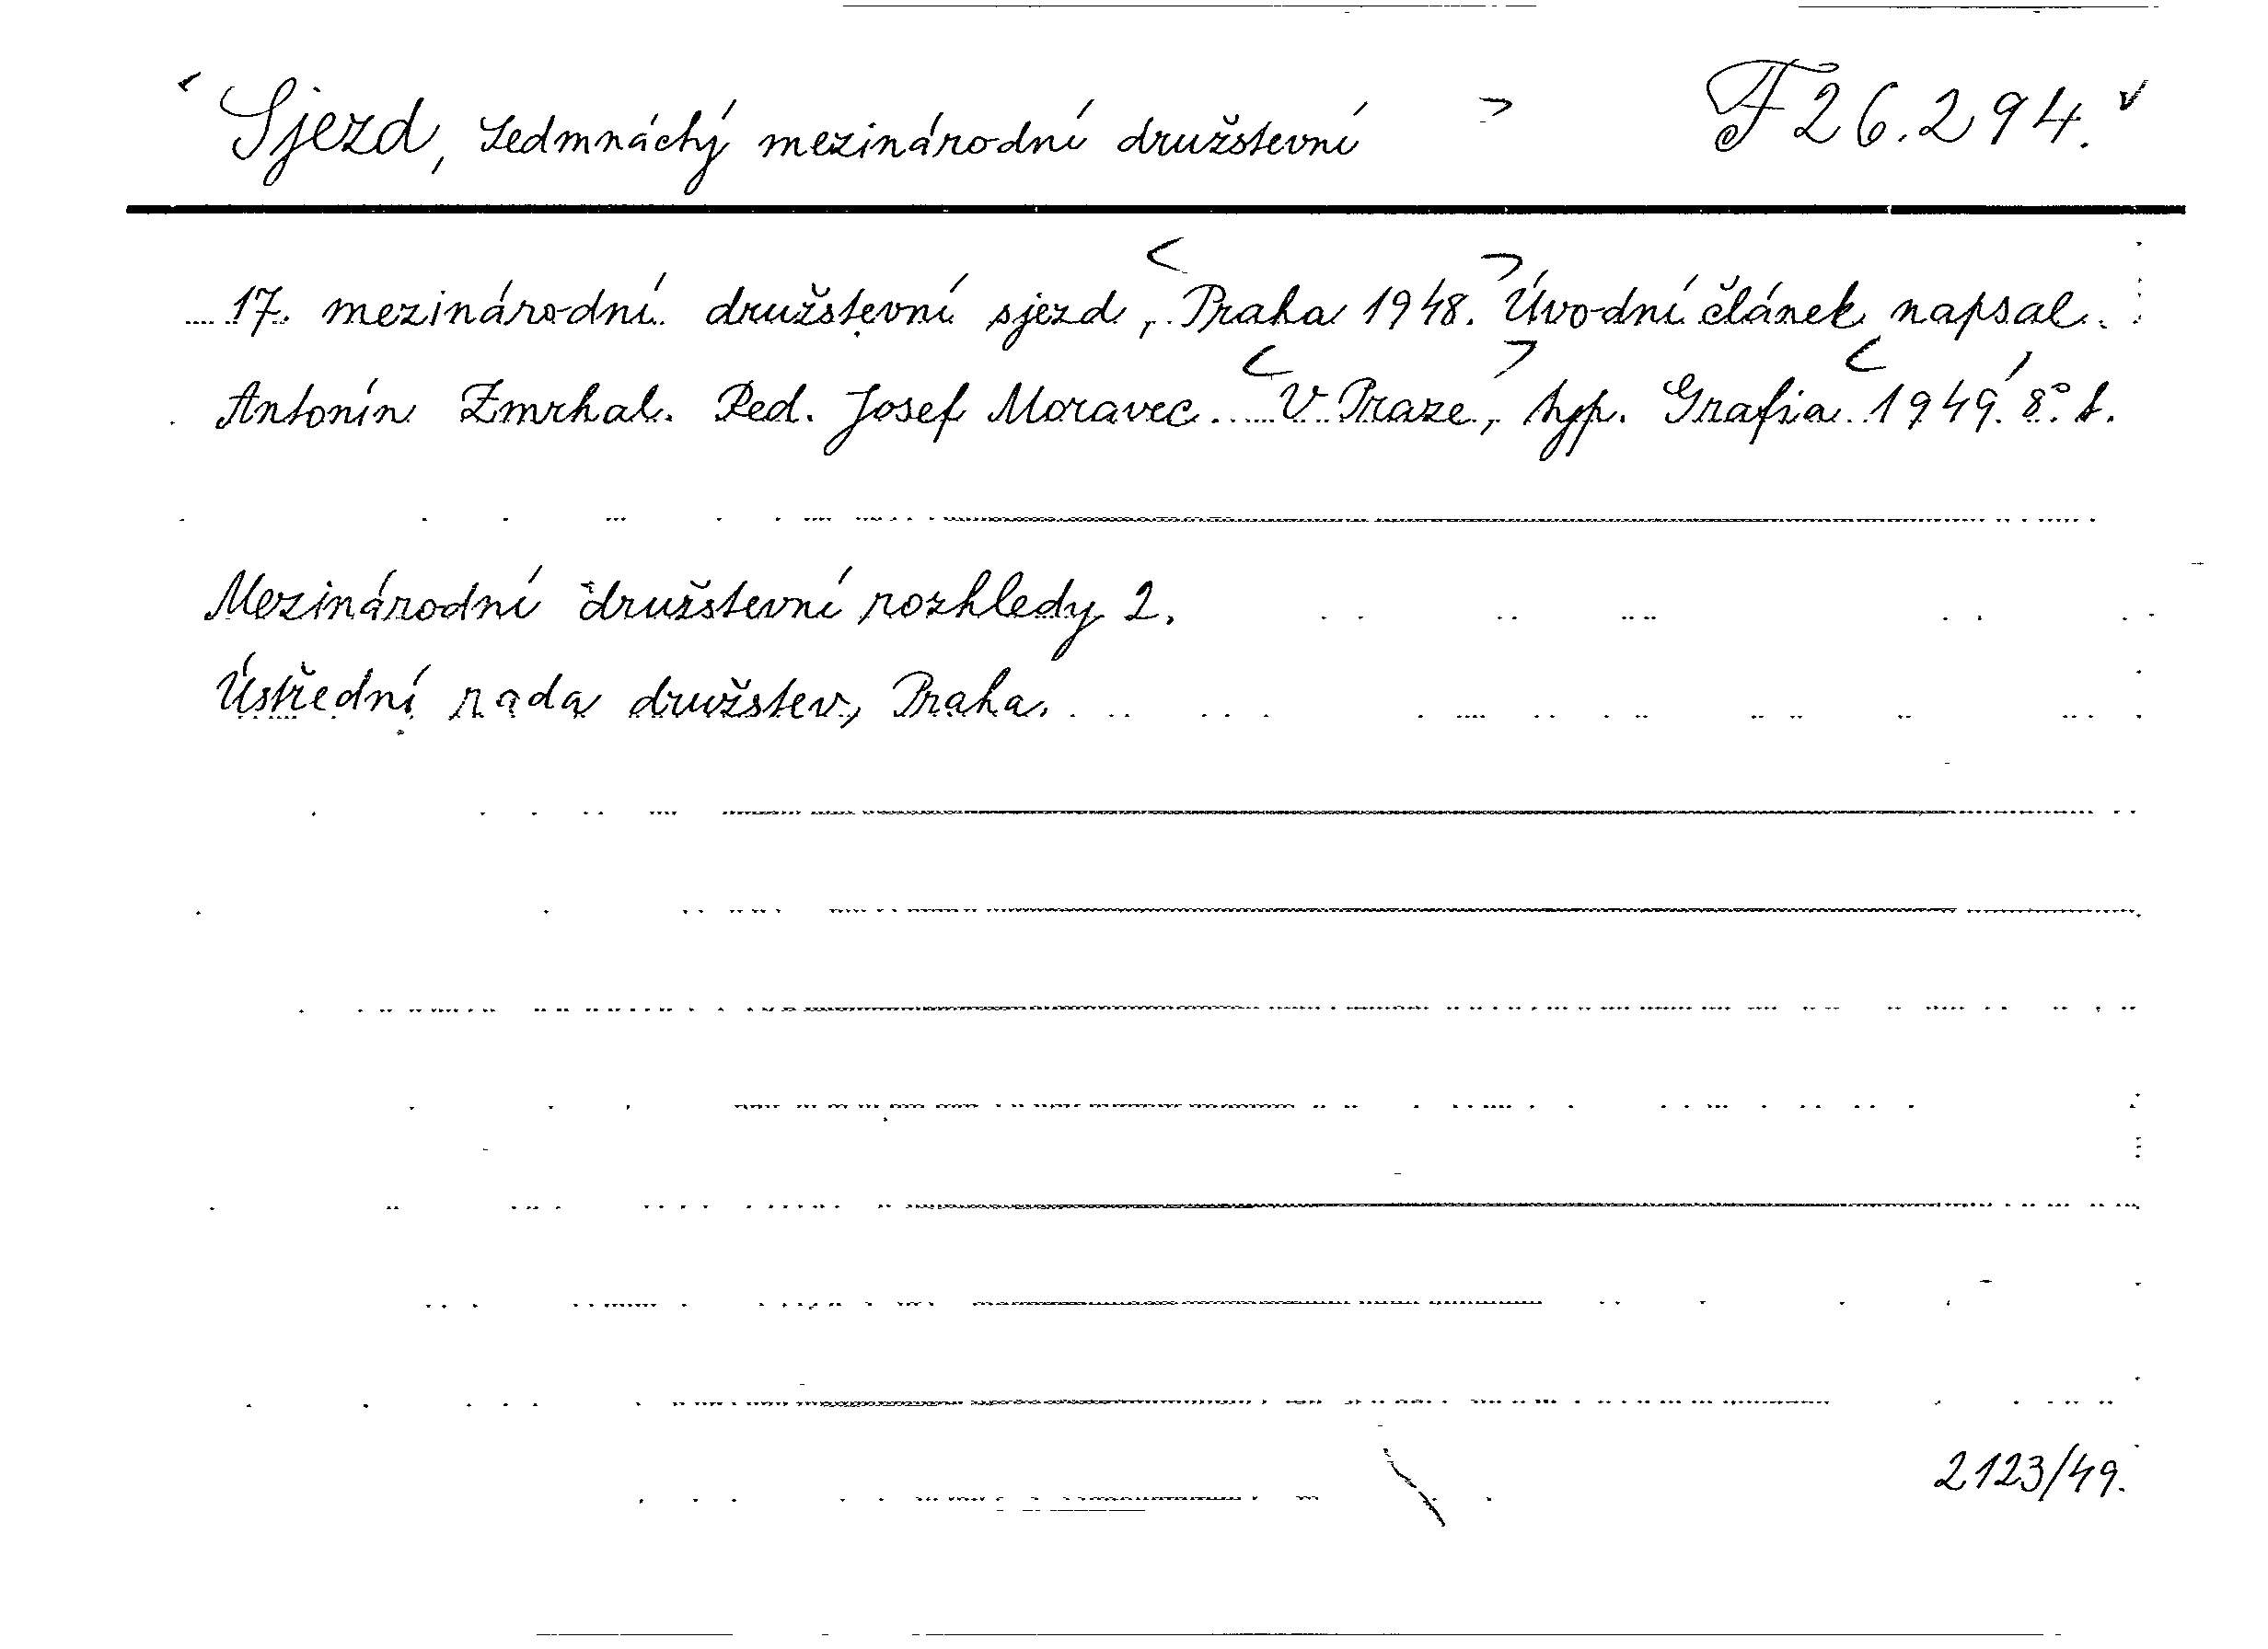 Sjezd, sedmnáctý mezinárodní družstevní F 26.294.
17. mezinárodní družstevní sjezd, Praha 1948. Úvodní článek napsal
Antonín Zmrhal. Red. Josef Moravec. V Praze, typ. Grafia 1949. 8°. s.
Mezinárodní družstevní rozhledy 2.
Ústřední rada družstev, Praha.
2123/49.